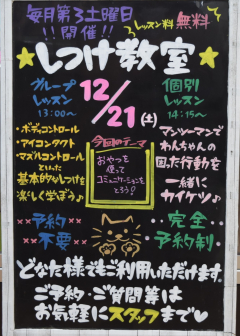 毎月第3土曜日
!!開催!! レッスン料無料
★しつけ教室★
グループ
レッスン
13:00〜
12/21(土)
個別
レッスン
14:15〜
・ボディコントロール
・アイコンタクト
・マズルコントロール
といった
基本的なしつけを
楽しく学ぼう♪
今回のテーマ
おやつを
使って
コミュニケーションを
とろう!
マンツーマンで
わんちゃんの
困った行動を
一緒に
カイケツ♪
予約
不要
完全
予約制
どなた様でもご利用いただけます。
ご予約・ご質問等は
お気軽にスタッフまで♥